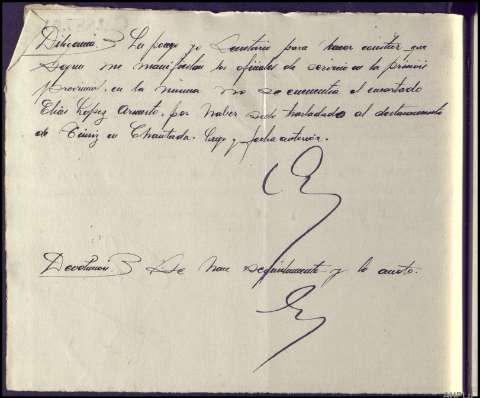 Diligencia} La pongo yo Secretario para hacer constar que
segun me manifiestan los oficiales de servicio en la prision
provincial, en la misma no se encuentra el encartado
Elias Lopez Armesto, por haber sido trasladado al destacamento
de en Chantada. Lugo y fecha anterior.
Devolucion} Se hace seguidamente y lo anoto.